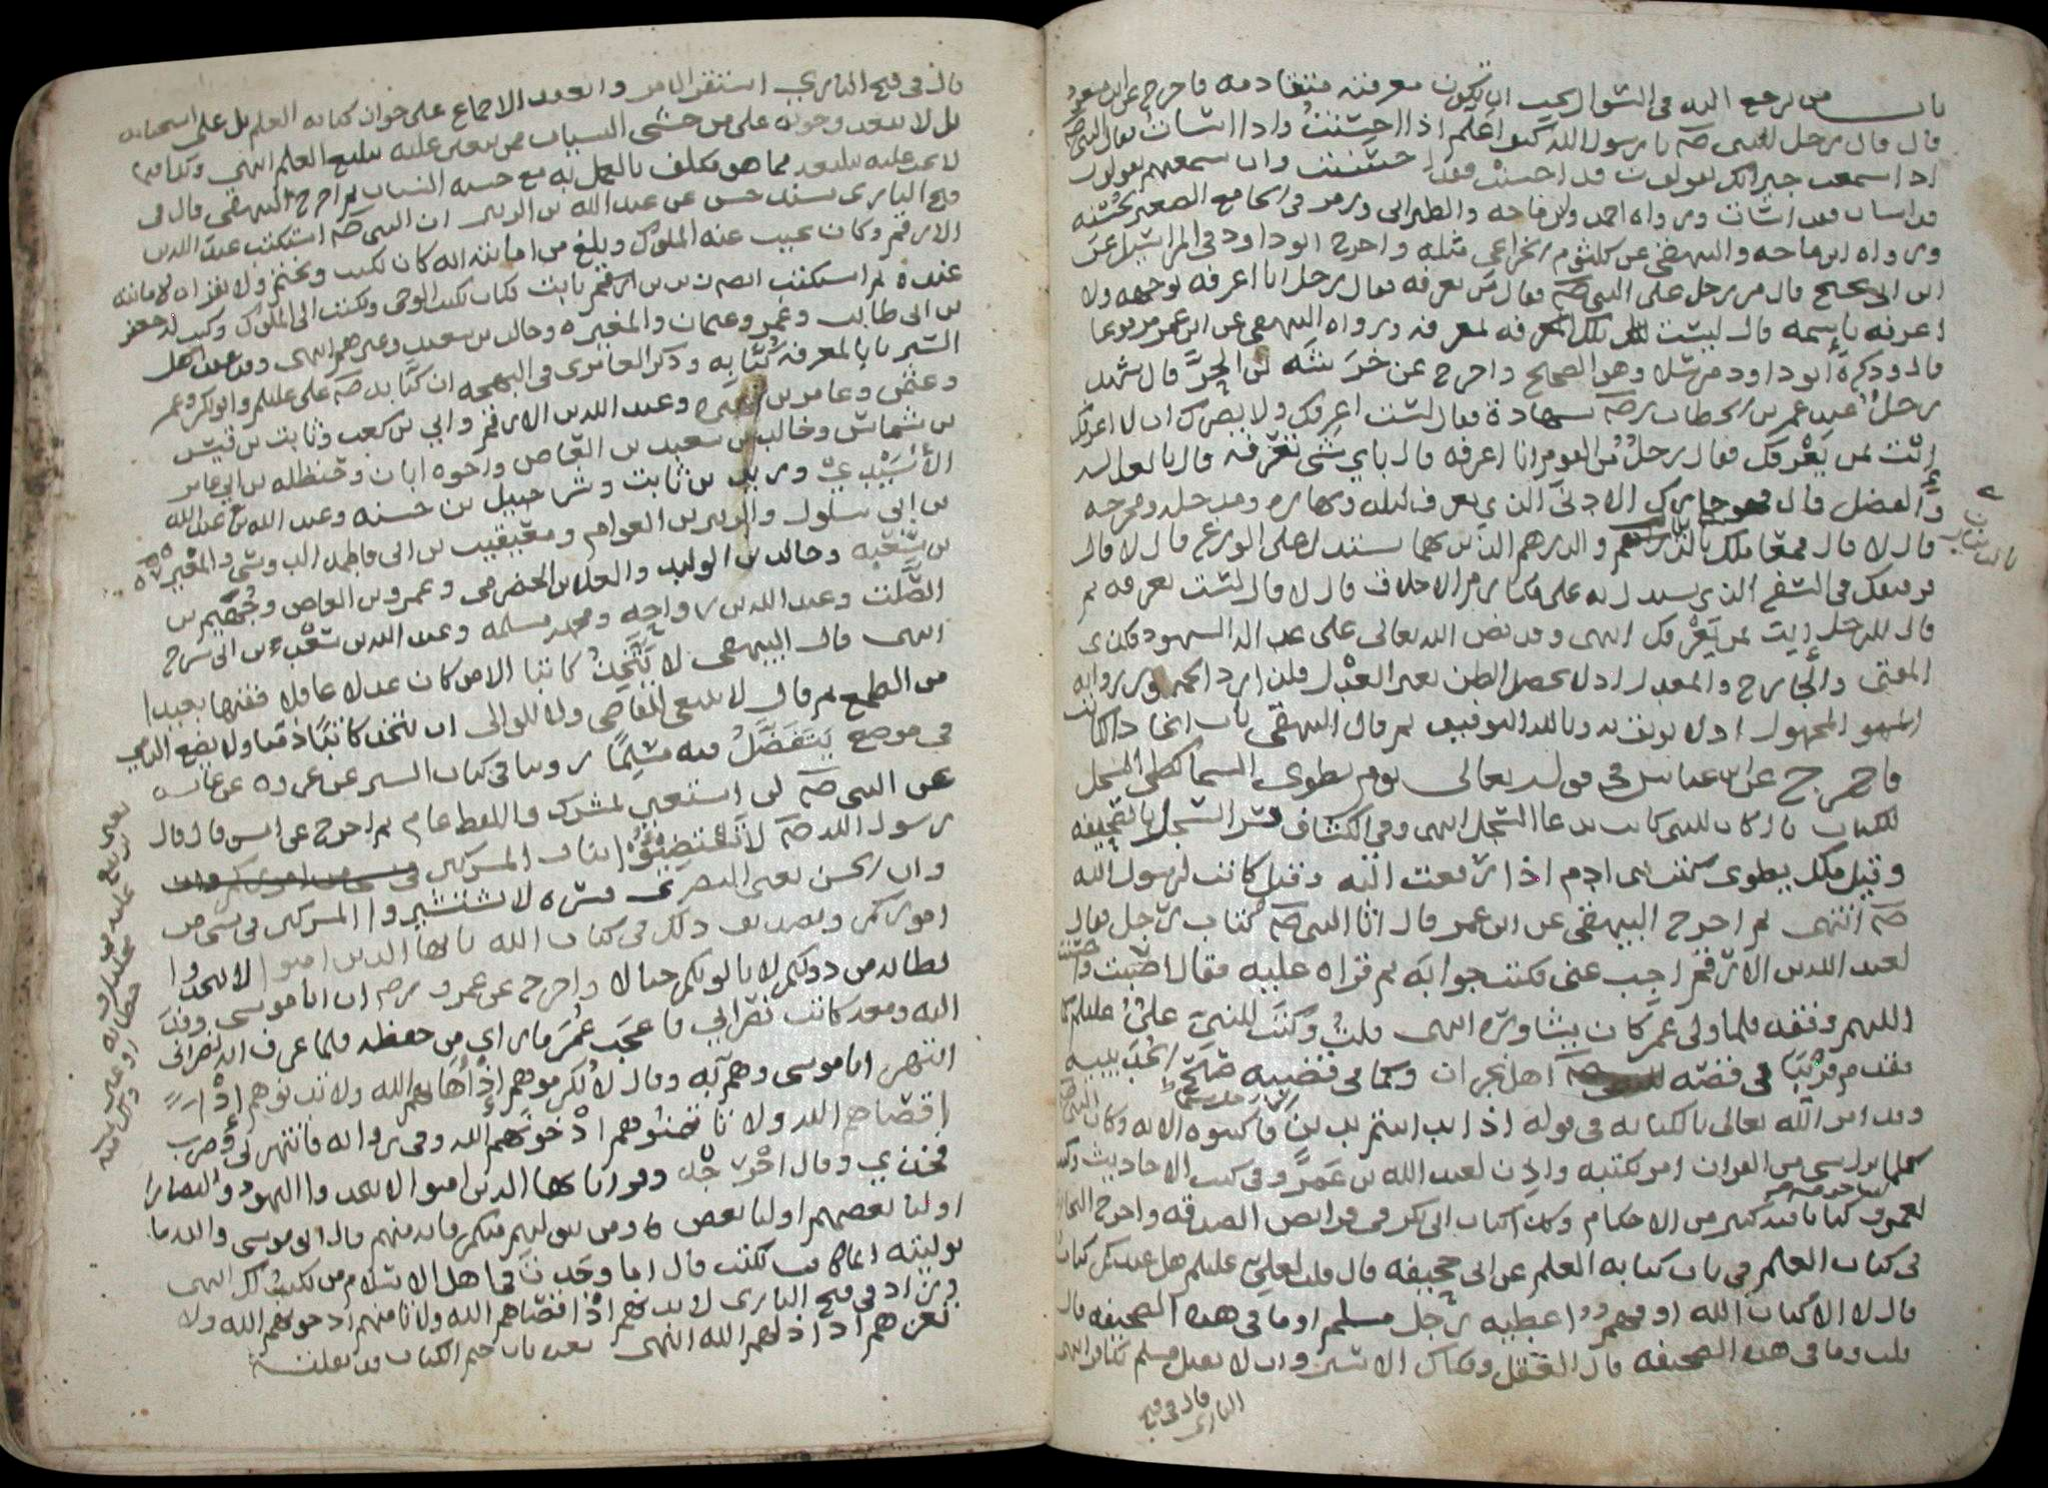 باب من يرجع اليه في السؤال يجب ان تكون معرفته متقادمه فاخرج عن ابن مسعود
قال قال رجل للنبي صلم يا رسول الله كيف اعلم اذا احسنتُ واذا اسات فقال النبي صلم
اذا سمعت جيرانك يقولون قد احسنت فقد احسنت وان سمعتهم يقولون
قد اسات فقد اسات ورواه احمد وابن ماجه والطبراني ورمز في الجامع الصغير لحُسْنه
ورواه ابن ماجه والبيهقي عن كلثوم الخزاعي مثله واخرج ابو داود في المراسيل عن
ابن ابي نجيح قال مر رجل على النبي صلم فقال من يعرفه فقال رجل انا اعرفه بوجهه ولا
اعرفه باسمه قال ليست تلك بمعرفه ورواه البيهقي عن ابن عمر مرفوعا
قال وذكره ابو داود مرسلا وهو الصحيح واخرج عن خَرَشَه بن الحُرّ قال شهد
رجلٌ عند عمر بن الخطاب رضه شهادة فقال لست اعرفك ولا يضرك ان لا اعرفك
إئت بمن يَعْرِفك فقال رجلٌ من القوم انا اعرفه قال باي شي تعرفه قال بالعداله
والفضل قال فهو جارك الادنى الذي تعرف ليله ونهاره ومدخله ومخرجه
قال لا قال فمعاملك بالدينار والدرهم الذين بهما يستدل على الورع قال لا قال
فرفيقك في السفر الذي يستدل به على مكارم الاخلاق قال لا قال لست تعرفه ثم
قال للرجل إيت بمن يَعْرِفك انتهى وقد نص الله تعالى على عداله الشهود فكذى
المفتي والجارح والمعدل اذ لا يحصل الظن بغير العَدْل
المجهول اذ لا يوثق به وبالله التوفيق ثم قال البيهقي باب اتخاذ الكاتب
فاخرج عن ابن عباس في قوله تعالى يوم نطوي السما كطي السجل
للكتاب قال كان للنبي كاتب يدعا السجل انتهى وفي الكشاف فسر السجل بالصحيفه
وقيل ملك يطوي كتب بني ادم اذا رفعت اليه وقيل كاتب لرسول الله
صلم انتهى ثم اخرج البيهقي عن ابن عمر قال اتا النبي صلم كتاب رجل فقال
لعبد الله بن الارقم اجب عني فكتب جوابه ثم قراه عليه فقال اصبت واحسنت
اللهم وفقه فلما ولي عمر كان يشاوره انتهى قلتُ وكتب للنبي عليٌ عليلم كما
تقدم قريبا في قصه اهل نجران وكما في قضيه صُلْح الحُدَيبيه
وقد امر الله تعالى بالكتابه في قوله اذا تداينتم بدين فاكتبوه الايه وكان النبي صلم
كلما نزل شي من القران امر بكتبه واذن لعبد الله بن عَمْرو في كتب الاحاديث وكتب
لعمرو بن حزم كتابا فيه كثير من الاحكام وكتاب ابي بكر في فرائض الصدقه واخرج البخاري
في كتاب العلم في باب كتابه العلم عن ابي جحيفه قال قلت لعليّ عليلم هل عندكم كتاب
قال لا الا كتاب الله او فهمٌ اعطيه رجل مسلم او ما في هذه الصحيفه قال
قلت وما في هذه الصحيفه قال العقل وفكاك الاسير وان لا يقتل مسلم بكافر انتهى
قال في فتح
الباري
قال في فتح الباري استقر الامر وانعقد الاجماع على جواز كتابه العلم بل على استحبابه
بل لا يبعد وجوبه على من خشي النسيان ممن يتعين عليه تبليغ العلم انتهى
فتح الباري بسند حسن عن عبد الله بن الزبير ان النبي صلم استكتب عبد الله بن
الارقم وكان يجيب عنه الملوك وبلغ من امانته انه كان يكتب ويختم ولا يقراه لامانته
عنده ثم استكتب ايضا زيد بن ثابت فكان يكتب الوحي ويكتب الى الملوك وكتب له جعفر
بن ابي طالب وعمر وعثمان والمغيره وخالد بن سعيد وغيرهم انتهى وقد عد اهل
السير بالمعرفه كُتّابه وذكر العامري في البهجه ان كتابه صلم علي عليلم وابو بكر وعمر
وعثمن وعامر بن فهيره وعبد الله بن الارقم وابي بن كعب وثابت بن قيس
بن شماس وخالد بن سعيد بن العاص واخوه ابان وحنظله بن ابي عامر
الأُسَيْديّ وزيد بن ثابت وشراحبيل بن حسنه وعبد الله بن عبد الله
بن ابي سلول والزبير بن العوام ومعيقيب بن ابي فاطمه الدوسي والمغيره
بن شعبه وخالد بن الوليد والعلا بن الحضرمي وعمرو بن العاص وجُهَيم بن
الصَّلت وعبد الله بن رواحه ومحمد بن مسلمه وعبد الله بن سَعْد بن ابي سرح
انتهى قال البيهقي لا يَتَّخِذُ كاتبا الا من كان عدلا عاقلا فقيها بعيدا
من الطمع ثم قال لا ينبغي للقاضي ولا للوالي ان يتخذ كاتبًا ذميا ولا يضع الذمي
في موضع يَتَفَضَّلُ فيه مسلمًا روينا في كتاب السير عن عروه عن عائشه
عن النبي صلم لن استعين بمشرك واللفظ عام ثم اخرج عن انس قال قال
رسول الله صلم لا تَسْتَضِيئُوا بنار المشركين
وان الحسن يعني البصري فسره لا تستشيروا المشركين في شي من
اموركم وتصديق ذلك في كتاب الله يا ايها الذين امنوا لا تتخذوا
بطانه من دونكم لا يالونكم خبالا واخرج عن عمر رضه ان ابا موسى وفد
اليه ومعه كاتب نصراني فاعجب عُمَر ما راى من حفظه فلما عرف انه نصراني
انتهر ابا موسى وقال لا تُكرموهم إذْ أهانهم الله ولا تدنوهم إذْ
اقصاهم الله ولا تاتمنوهم اذْ خونهم الله وفي روايه فانتهرني وضرب
فخذي وقال اخْرِجْه وقرا يا ايها الذين امنوا لا تتخذوا اليهود والنصارا
اوليا بعضهم اوليا بعض ومن يتولهم منكم فانه منهم قال ابو موسى والله ما
توليته انما كان يكتب قال اما وجدت في اهل الاسلام من يكتب لك انتهى
وزاد في فتح الباري لا تدنهم اذْ اقصاهم الله ولا تامنهم اذ خونهم الله ولا
تعزهم اذْ اذلهم الله انتهى بعده باب ختم الكتاب